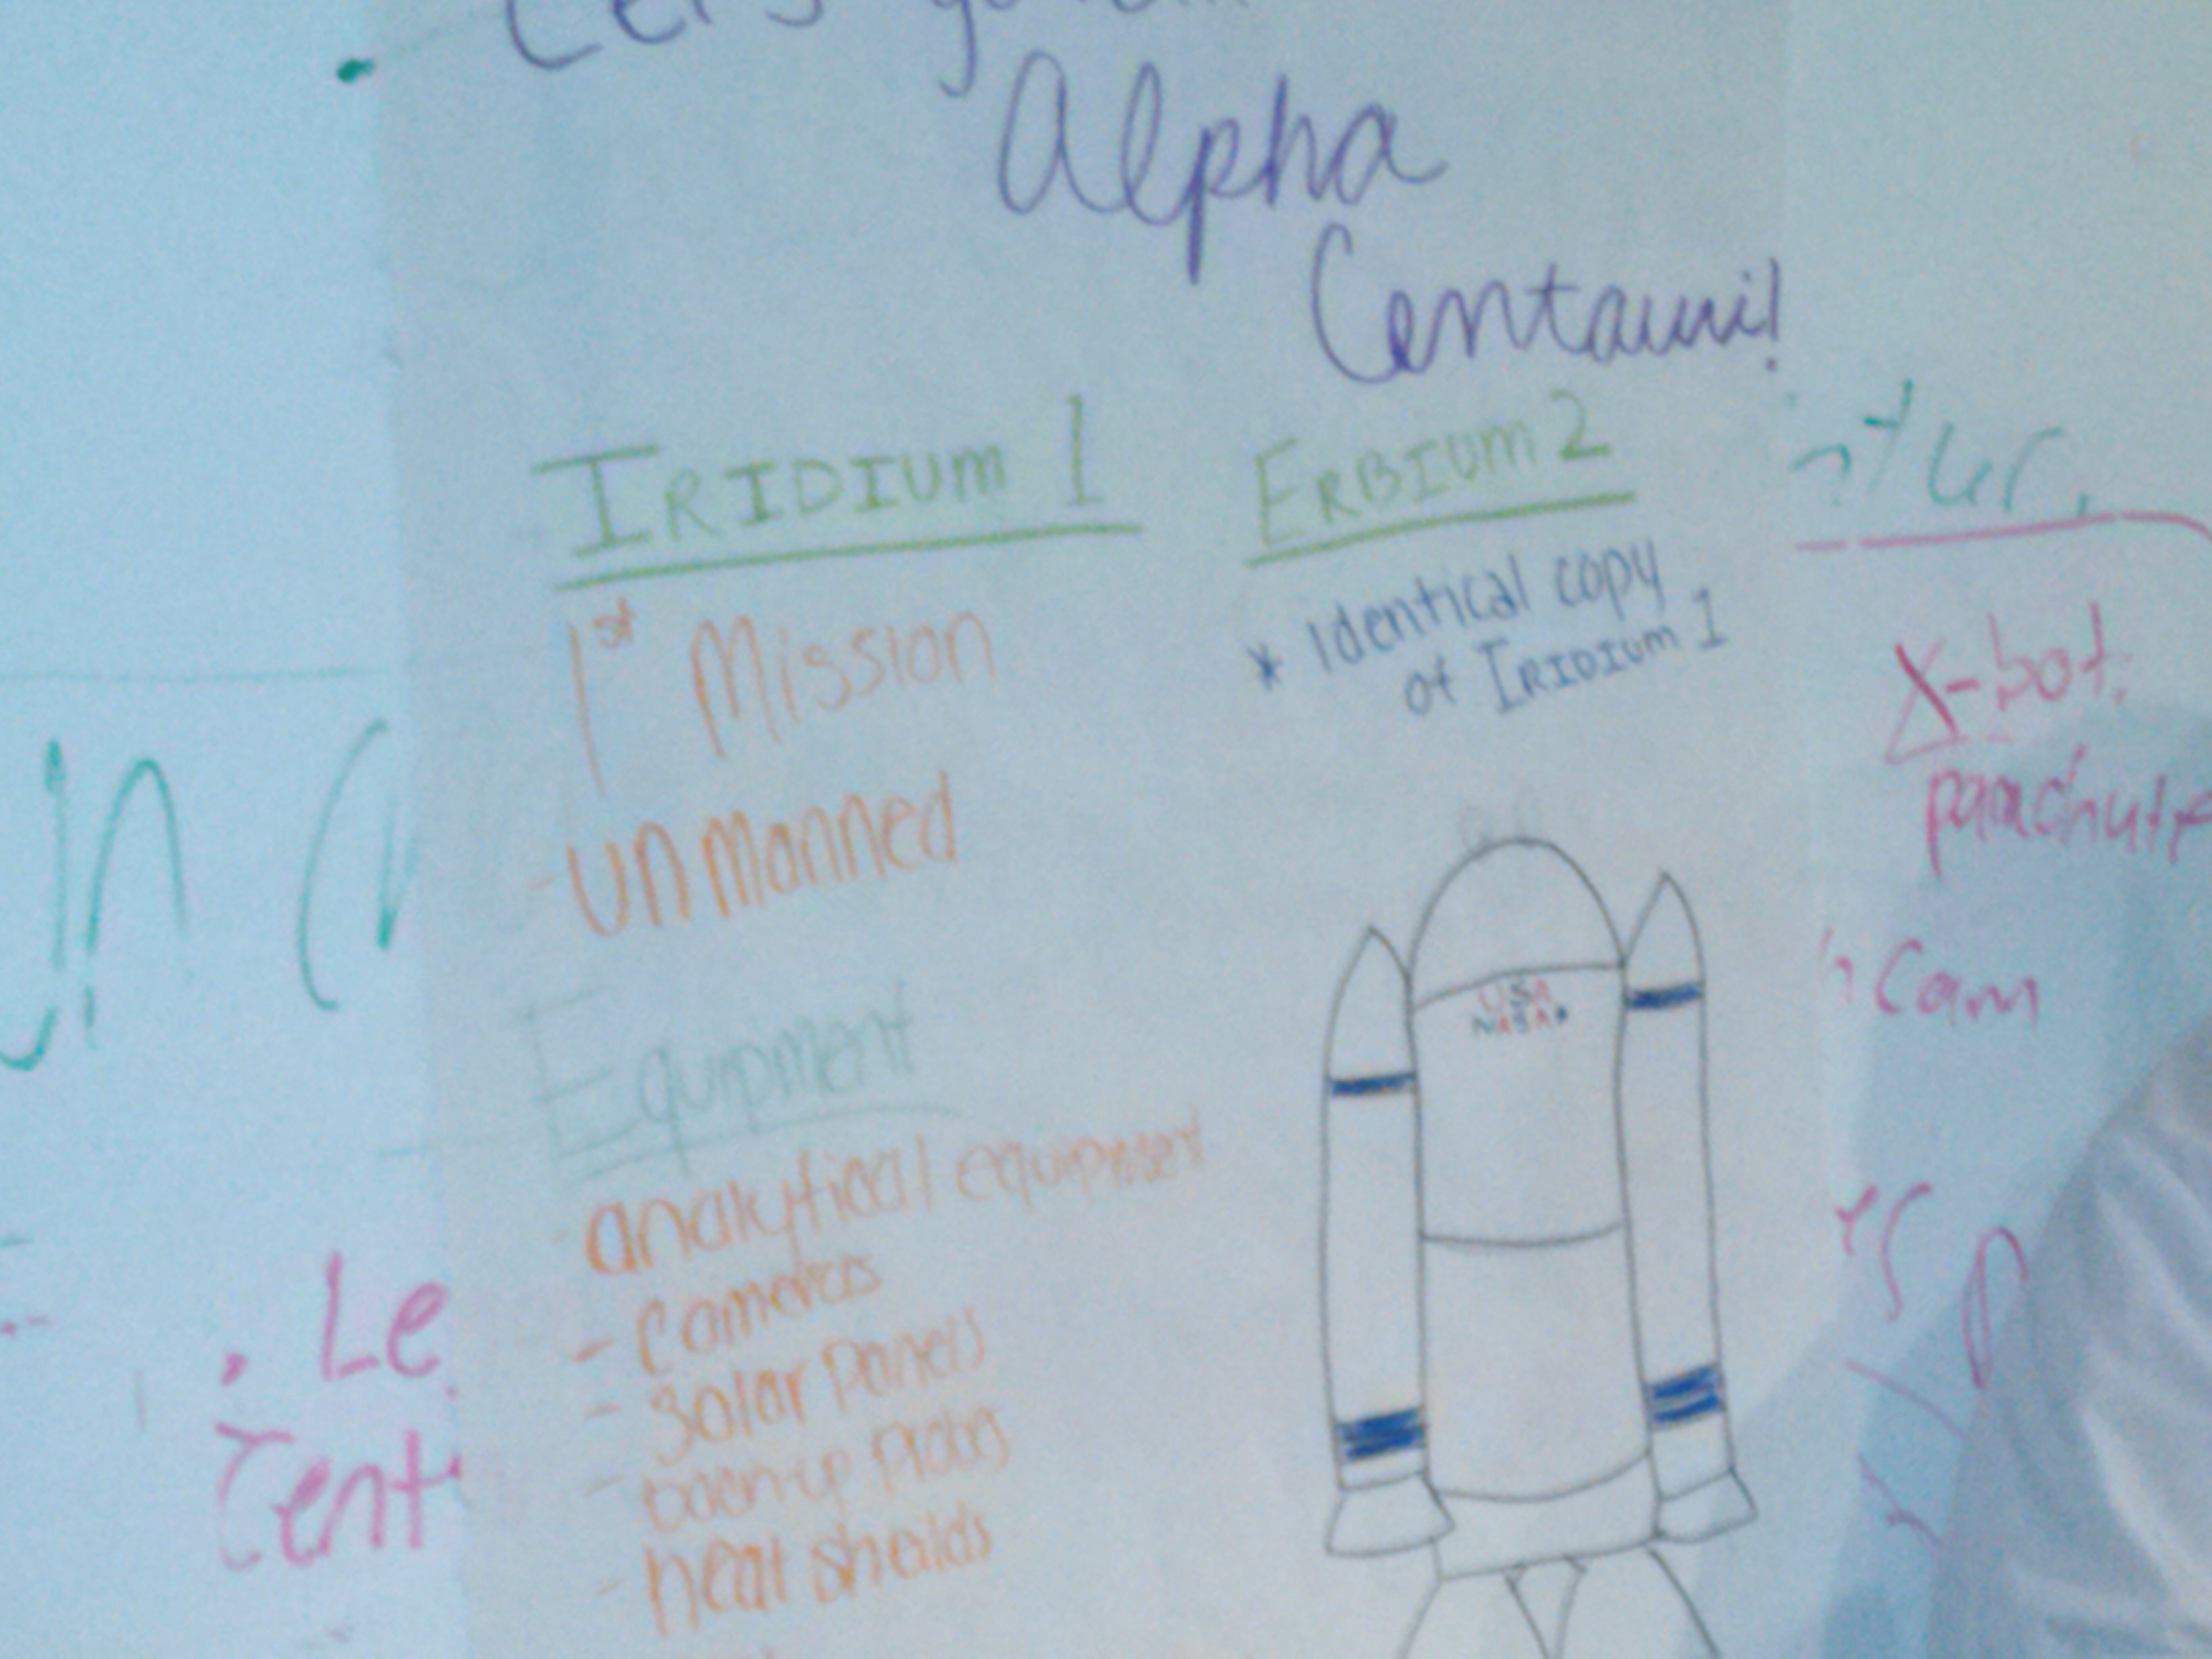 Let's
Alpha
Centauri!
IRIDIUM 1
1st Mission
-unmanned
Equipment
analytical equipment
- cameras
- solar panels
- back-up
- heat sheilds
ERBIUM 2
* identical copy
of IRIDIUM 1
USA
NASA
X-bot.
parachute
Cam
Le
Cent